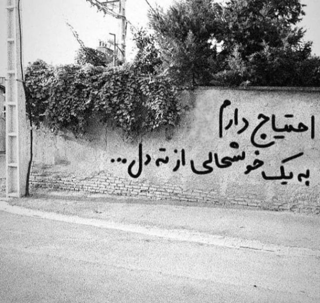 احتیاج دارم
به یک خوشحالی از ته دل...